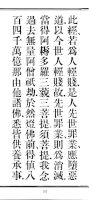 此經若為人輕賤是人先世罪業應墮惡
道以今世人輕賤故先世罪業則為消滅
當得阿耨多羅三藐三菩提須菩提我念
過去無量阿僧祇劫於然燈佛前得值八
百四千萬億那由他諸佛悉皆供養承事